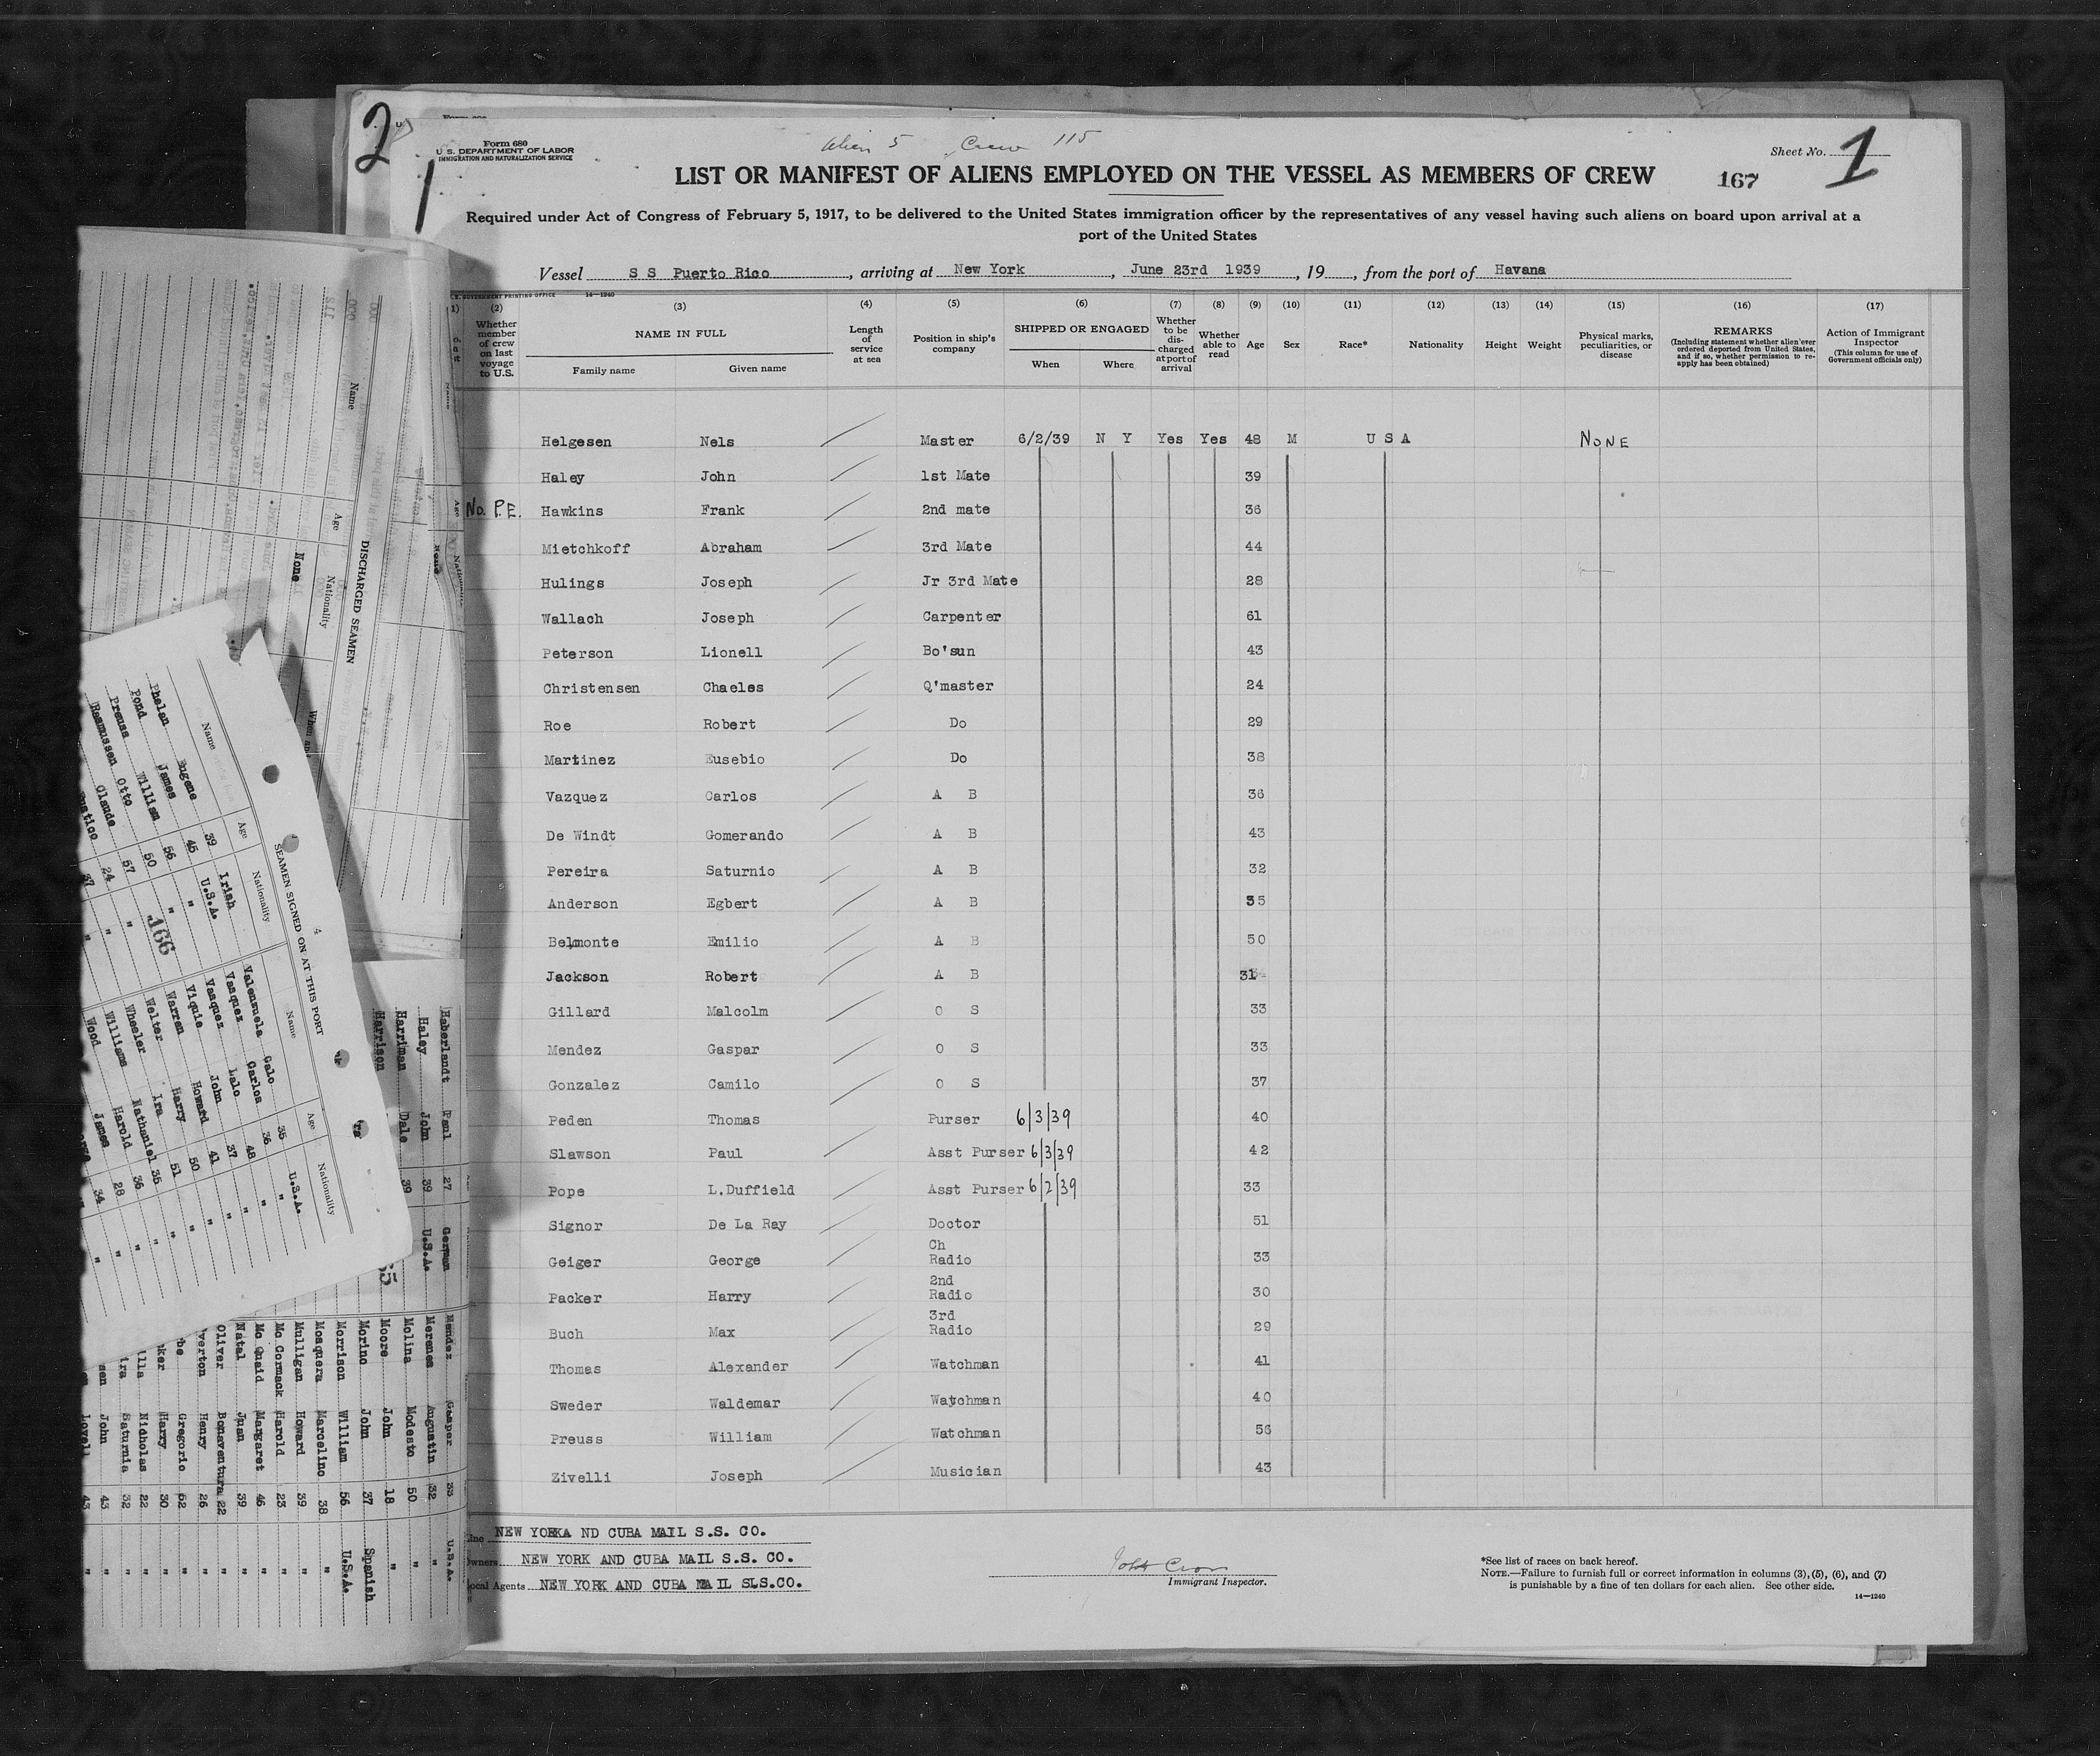 2
1
Form 680
U. S. DEPARTMENT OF LABOR
IMMIGRATION AND NATURALIZATION SERVICE
Alien 5 Crew 115
Sheet No. 1
LIST OR MANIFEST OF ALIENS EMPLOYED ON THE VESSEL AS MEMBERS OF CREW
167
Required under Act of Congress of February 5, 1917, to be delivered to the United States immigration officer by the representatives of any vessel having such aliens on board upon arrival at a
port of the United States
Vessel S S Puerto Rico, arriving at New York, June 23rd 1939, 19, from the port of Havana
GOVERNMENT PRINTING OFFICE 14—1240
(2) (3) (4) (5) (6) (7) (8) (9) (10) (11) (12) (13) (14) (15) (16) (17)
Whether member of crew on last voyage to U.S.
NAME IN FULL
Family name Given name
Length of service at sea
Position in ship's company
SHIPPED OR ENGAGED
When Where
Whether to be discharged at port of arrival
Whether able to read
Age
Sex
Race*
Nationality
Height
Weight
Physical marks, peculiarities, or disease
REMARKS
(Including statement whether alien ever ordered deported from United States, and if so, whether permission to reapply has been obtained)
Action of Immigrant Inspector
(This column for use of Government officials only)
Helgesen Nels Master 6/2/39 N Y Yes Yes 48 M U S A NONE
Haley John 1st Mate 39
No. P.E. Hawkins Frank 2nd mate 36
Mietchkoff Abraham 3rd Mate 44
Hulings Joseph Jr 3rd Mate 28
Wallach Joseph Carpenter 61
Peterson Lionell Bo'sun 43
Christensen Chaeles Q'master 24
Roe Robert Do 29
Martinez Eusebio Do 38
Vazquez Carlos A B 36
De Windt Gomerando A B 43
Pereira Saturnio A B 32
Anderson Egbert A B 35
Belmonte Emilio A B 50
Jackson Robert A B 31
Gillard Malcolm O S 33
Mendez Gaspar O S 33
Gonzalez Camilo O S 37
Peden Thomas Purser 6/3/39 40
Slawson Paul Asst Purser 6/3/39 42
Pope L.Duffield Asst Purser 6/2/39 33
Signor De La Ray Doctor 51
Geiger George Ch Radio 33
Packer Harry 2nd Radio 30
Buch Max 3rd Radio 29
Thomas Alexander Watchman 41
Sweder Waldemar Watchman 40
Preuss William Watchman 56
Zivelli Joseph Musician 43
NEW YORKA ND CUBA MAIL S.S. CO.
Owners NEW YORK AND CUBA MAIL S.S. CO.
Local Agents NEW YORK AND CUBA MAIL SLS.CO.
Immigrant Inspector.
*See list of races on back hereof.
NOTE.—Failure to furnish full or correct information in columns (3), (5), (6), and (7)
is punishable by a fine of ten dollars for each alien. See other side.
14—1240
DISCHARGED SEAMEN
Name Age Nationality
None
4
SEAMEN SIGNED ON AT THIS PORT
Name Age Nationality
Name Age Nationality
Phelan Eugene 39 Irish
Pond James 45 U.S.A.
Preuss William 56 "
Rasmussen Otto 50 "
Claude 57 "
24 "
166
Valenzuela Galo 35 U.S.A.
Vasquez Carlos 36 "
Vasquez Lalo 48 "
Viquie John 37 "
Warren Howard 41 "
Welter Harry 50 "
Wheeler Ira 51 "
Williams Nathaniel 35 "
Wood Harold 36 "
James 28 "
34 "
Haberlandt Paul 27 German
Haley John 39 U.S.A.
Harriman Dale 39
Harrison
Mendez Gaspar 33 U.S.A.
Merenes Augustin 32 "
Molina Modesto 50 "
Moore John 18 "
Morino John 37 Spanish
Morrison William 56 U.S.A.
Mosquera Marcelino 38 "
Mulligan Howard 39 "
Mc Cormack Harold 23 "
Mc Quaid Margaret 46 "
Natal Juan 39 "
Oliver Bonaventura 22 "
Henry 26 "
Gregorio 52 "
Harry 30 "
Nicholas 22 "
Saturnia 32 "
John 43 "
Lovell 43 "